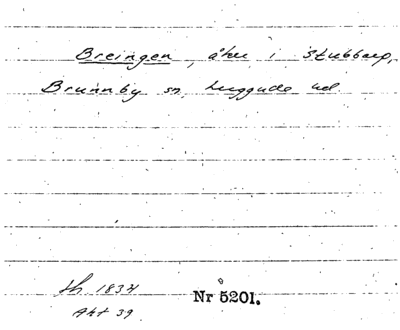 Breingen, åker i Stubbarp,
Brunnby sn, Luggude hd
Sh. 1834
Akt 39
Nr 5201.